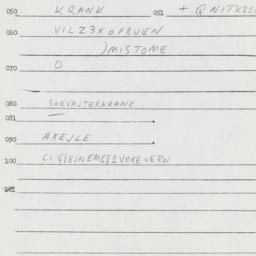 050 KRANK 051 + QNITK821
060 VILZ3XOPRUEN
)MISTOME
070 O
080 SLEVAJTERKRANK
081
090 AXEJLE
100 CLG8EJNEMG81VOREVERN
101